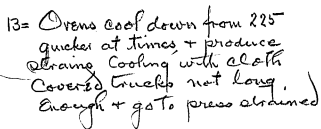 B= Ovens cool down from 225
quicker at times, + produce
strains Cooling with cloth
Covered trucks not long
Enough + go to press strained